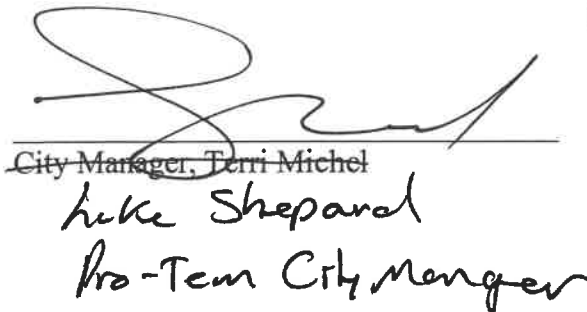 City Manager, Terri Michel
Luke Shepard
Pro-Tem City Manger